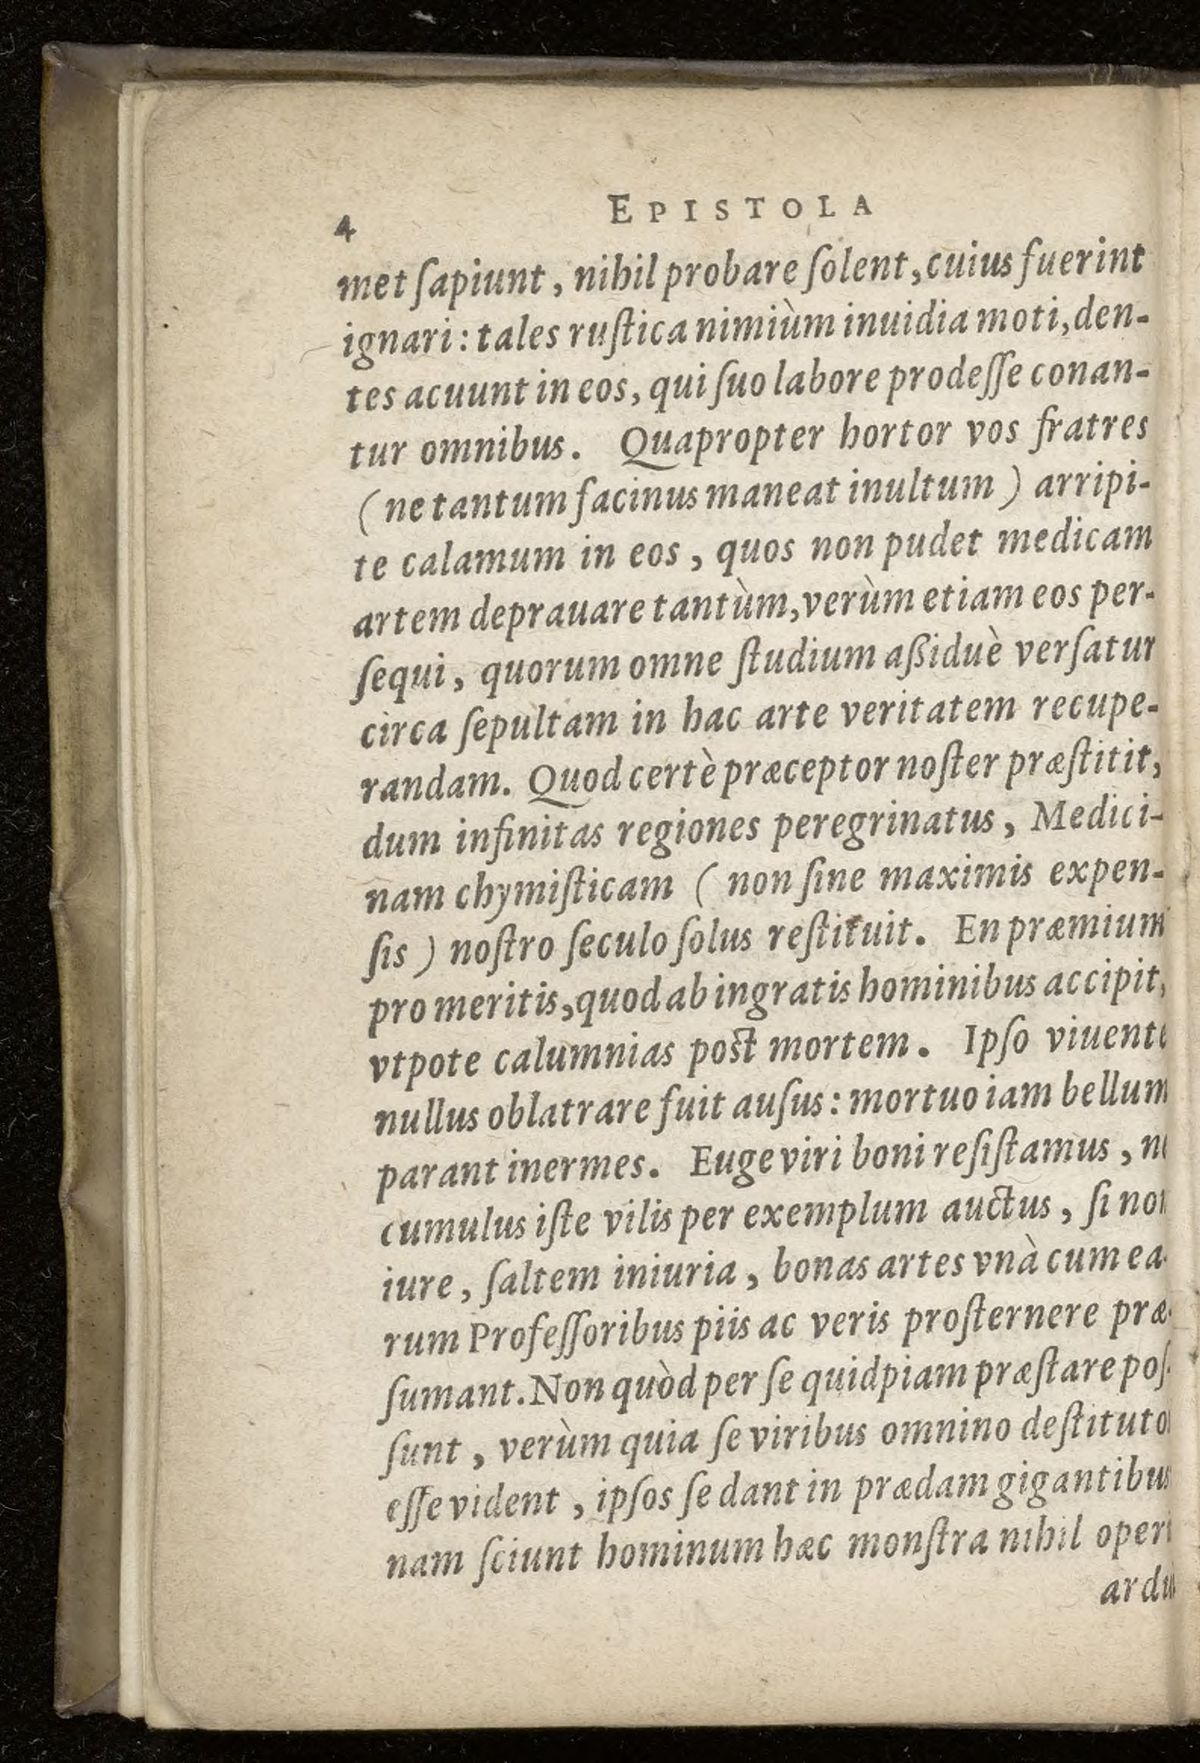 4 EPISTOLA
met ſapiunt, nihil probare ſolent, cuius fuerint
ignari: tales ruſtica nimiùm inuidia moti, den-
tes acuunt in eos, qui ſuo labore prodeſſe conan-
tur omnibus. Quapropter hortor vos fratres
(ne tantum facinus maneat inultum) arripi-
te calamum in eos, quos non pudet medicam
artem deprauare tantùm, verùm etiam eos per-
ſequi, quorum omne ſtudium aßiduè verſatur
circa ſepultam in hac arte veritatem recupe-
randam. Quod certè præceptor noſter præſtitit,
dum infinitas regiones peregrinatus, Medici-
nam chymiſticam (non ſine maximis expen-
ſis) noſtro ſeculo ſolus reſtituit. En præmium
pro meritis, quod ab ingratis hominibus accipit,
vtpote calumnias poſt mortem. Ipſo viuente
nullus oblatrare fuit auſus: mortuo iam bellum
parant inermes. Euge viri boni reſiſtamus,
cumulus iſte vilis per exemplum auctus, ſi non
iure, ſaltem iniuria, bonas artes vnà cum ea-
rum Profeſſoribus piis ac veris proſternere præ-
ſumant. Non quòd per ſe quidpiam præſtare poſ-
ſunt, verùm quia ſe viribus omnino
eſſe vident, ipſos ſe dant in prædam gigantibus
nam ſciunt hominum hæc monſtra nihil